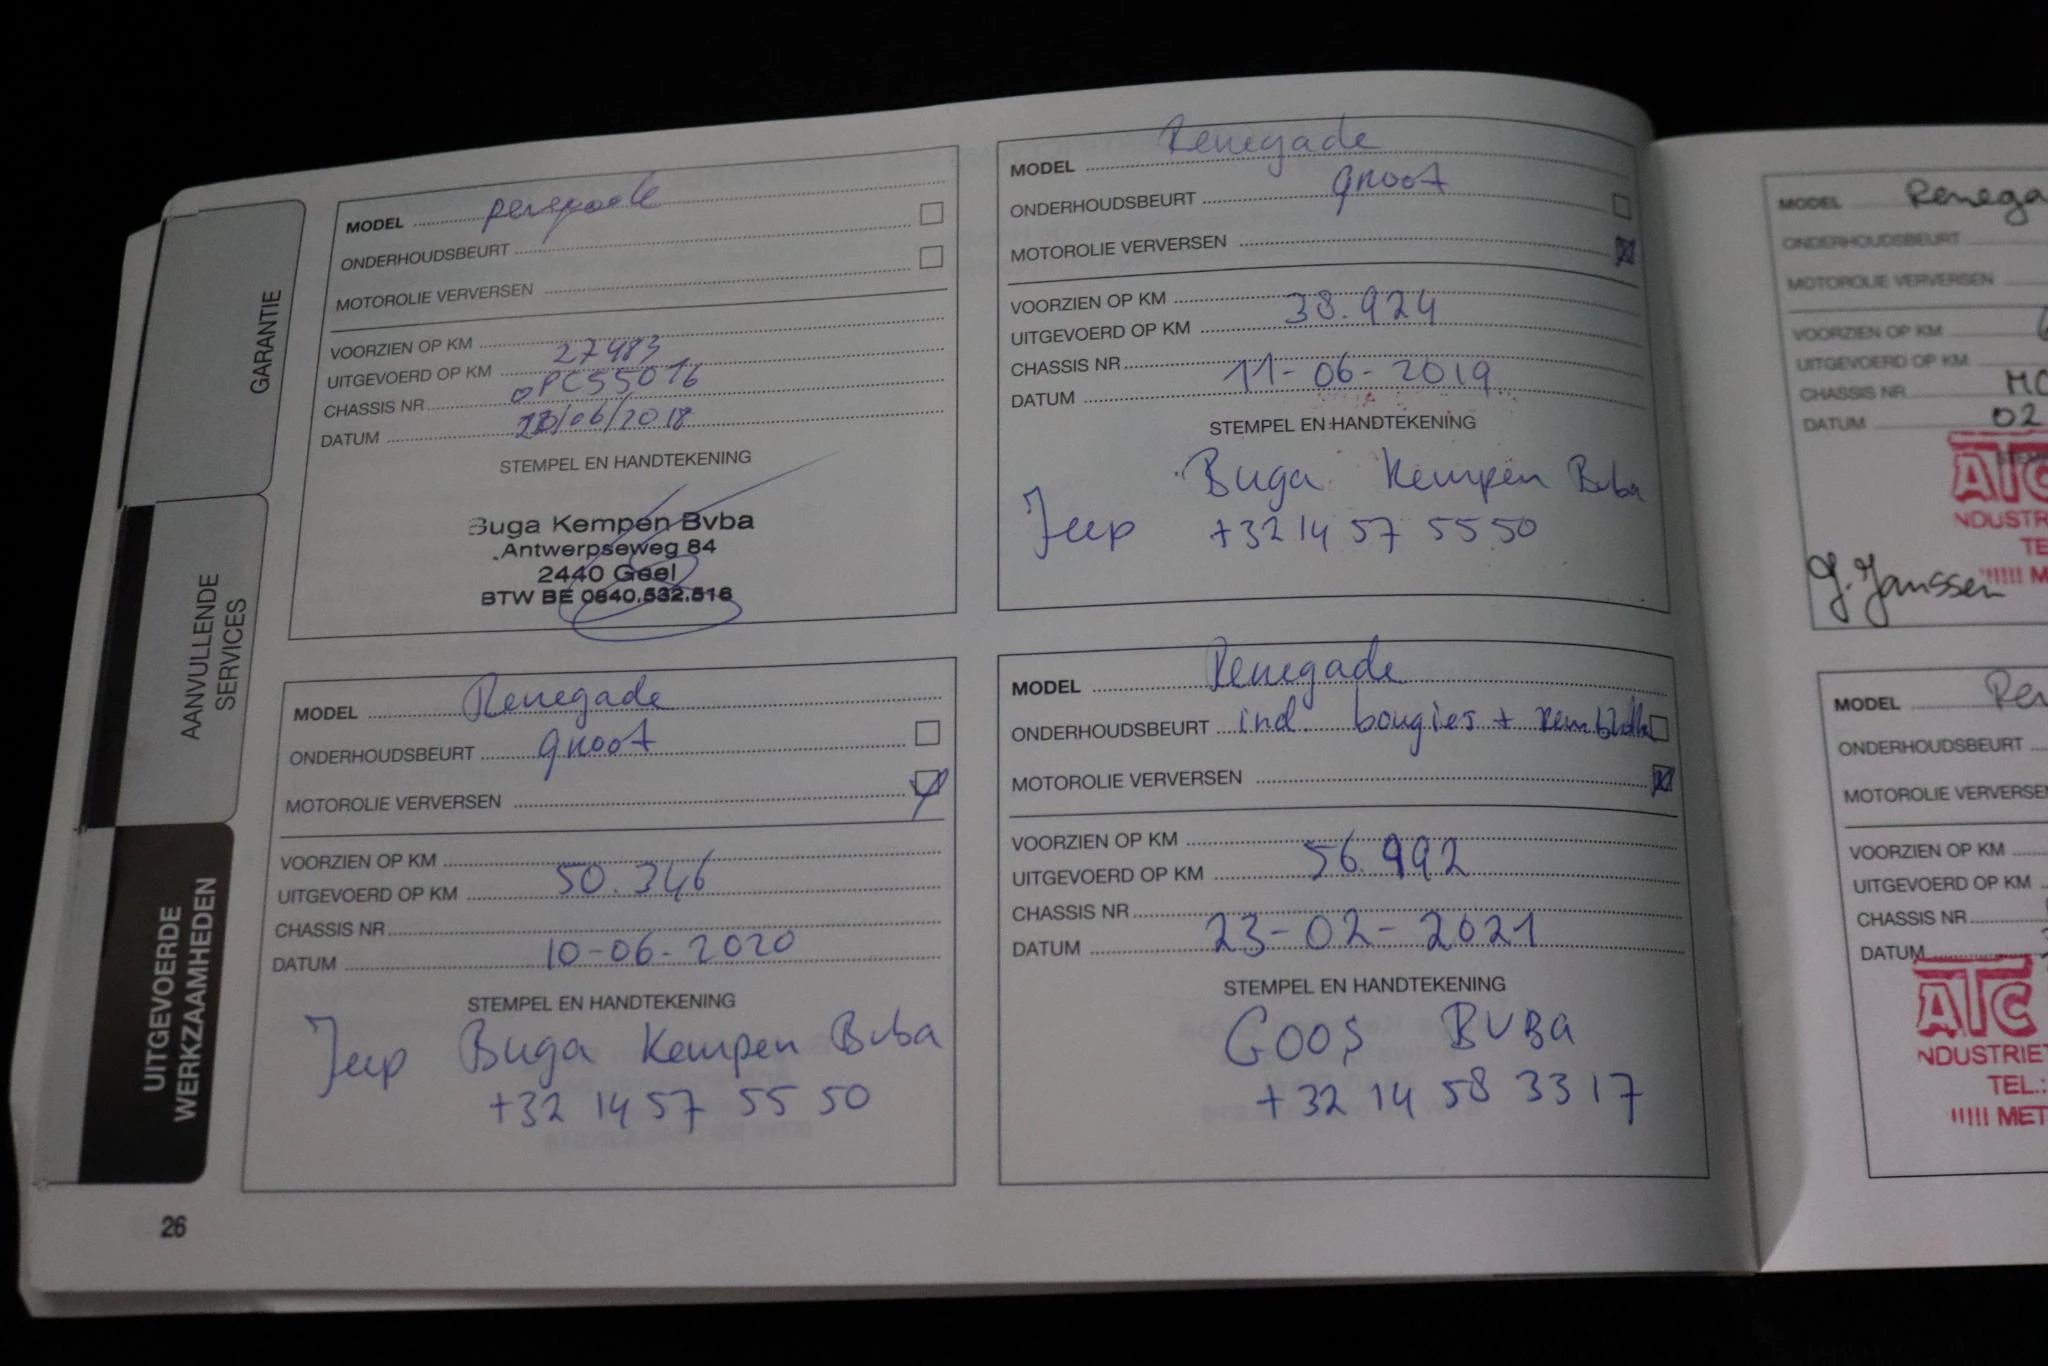 GARANTIE
AANVULLENDE
SERVICES
UITGEVOERDE
WERKZAAMHEDEN
MODEL
ONDERHOUDSBEURT
MOTOROLIE VERVERSEN
VOORZIEN OP KM
UITGEVOERD OP KM 27483
CHASSIS NR PC55016
DATUM /06/2018
STEMPEL EN HANDTEKENING
Buga Kempen Bvba
Antwerpseweg 84
2440 Geel
BTW BE 0840.532.516
MODEL Renegade
ONDERHOUDSBEURT groot
MOTOROLIE VERVERSEN
VOORZIEN OP KM
UITGEVOERD OP KM 38.924
CHASSIS NR
DATUM 11-06-2019
STEMPEL EN HANDTEKENING
Jeep Buga Kempen Bvba
+32 14 57 55 50
MODEL Renegade
ONDERHOUDSBEURT groot
MOTOROLIE VERVERSEN
VOORZIEN OP KM
UITGEVOERD OP KM 50.346
CHASSIS NR
DATUM 10-06-2020
STEMPEL EN HANDTEKENING
Jeep Buga Kempen Bvba
+32 14 57 55 50
MODEL Renegade
ONDERHOUDSBEURT incl. bougies +
MOTOROLIE VERVERSEN
VOORZIEN OP KM
UITGEVOERD OP KM 56.992
CHASSIS NR
DATUM 23-02-2021
STEMPEL EN HANDTEKENING
GOOS BVBA
+32 14 58 33 17
26
MODEL Renega
ONDERHOUDSBEURT
MOTOROLIE VERVERSEN
VOORZIEN OP KM
UITGEVOERD OP KM
CHASSIS NR
DATUM 02
ATC
NDUSTR
TE
!!!!! M
J. Janssen
MODEL Ren
ONDERHOUDSBEURT
MOTOROLIE VERVERSE
VOORZIEN OP KM
UITGEVOERD OP KM
CHASSIS NR
DATUM
ATC
NDUSTRIET
TEL.:
!!!!! MET